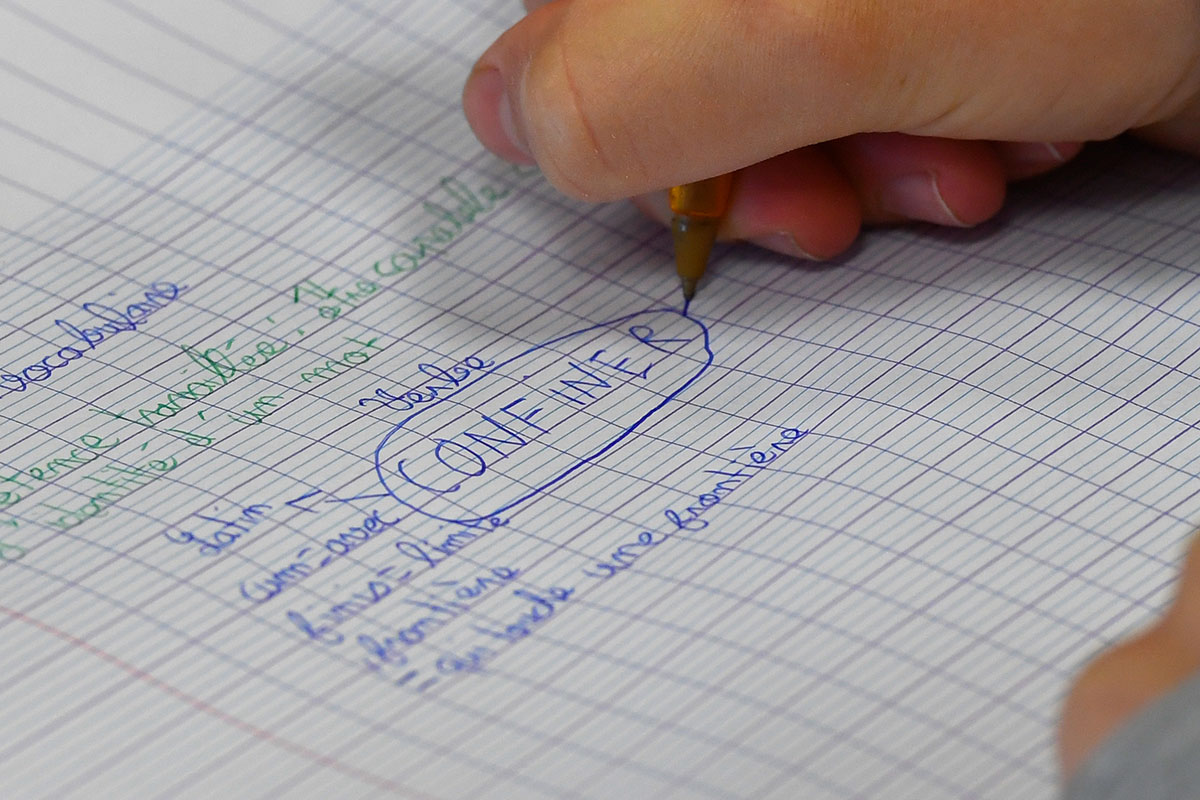 vocabulaire
travaillée : Être capable
identité d'un mot
Verbe
CONFINER
Latin
cum = avec
finis = limite
frontière
= qui borde une frontière